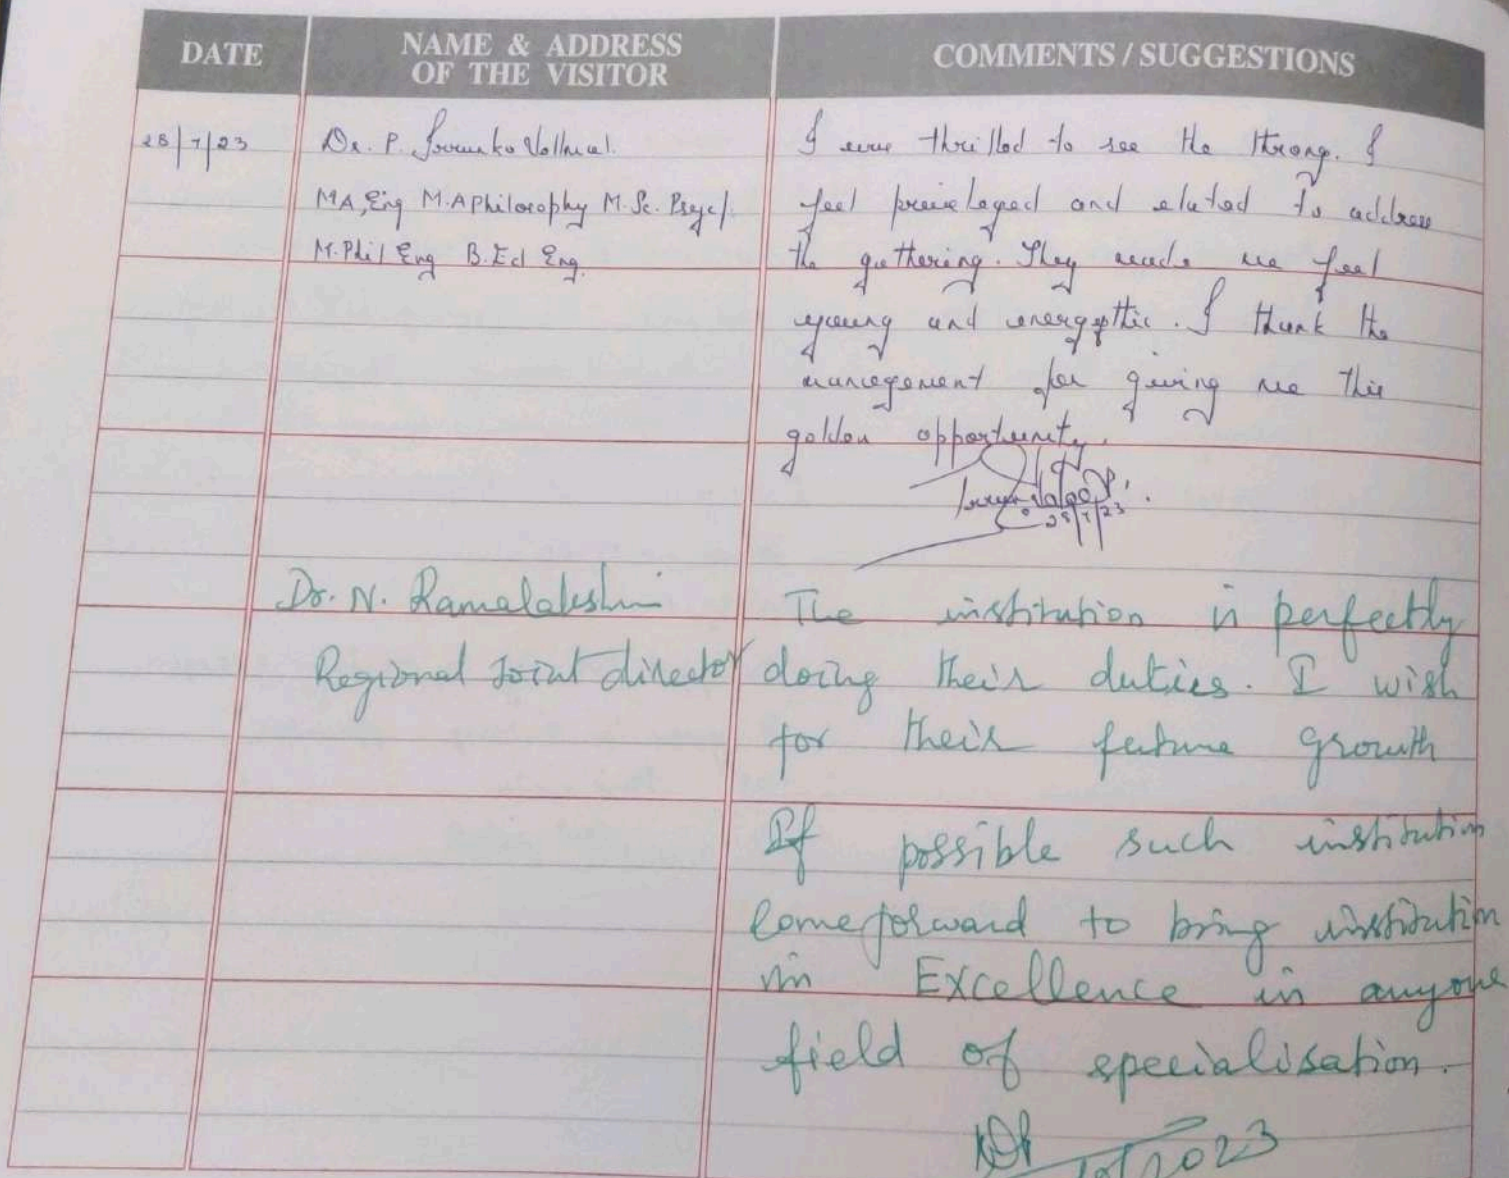 DATE
NAME & ADDRESS
OF THE VISITOR
COMMENTS / SUGGESTIONS
28/7/23
Dr. P.
MA, Eng M.A Philosophy M.Sc. Psy
M.Phil Eng B.Ed Eng.
I was thrilled to see the throng. I
feel previlaged and elated to address
the gathering. They made me feel
young and energetic. I thank the
management for giving me this
golden opportunity.
28/7/23
Dr. N. Ramalakshmi
Regional Joint director
The institution is perfectly
doing their duties. I wish
for their future growth
If possible such institution
Come forward to bring institution
in Excellence in anyone
field of specialisation.
2023